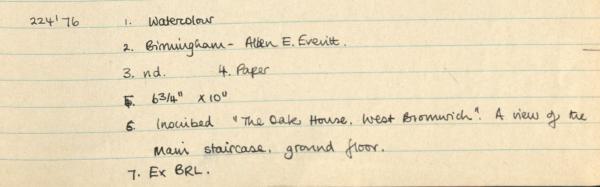 224'76 1. Watercolour
2. Birmingham - Allen E. Everitt.
3. nd. 4. Paper
5. 6 3/4" x 10"
6. Inscribed "The Oak House, West Bromwich". A view of the
main staircase, ground floor.
7. Ex BRL.